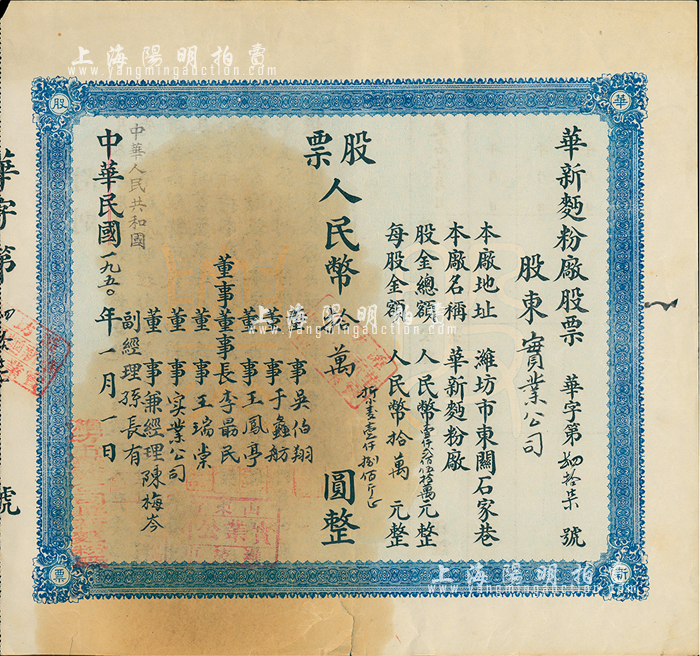 上海陽明拍賣
www.yangmingauction.com
華
新
股
票
華新麵粉廠股票
華字第肆拾柒號
股東實業公司
本廠地址 濰坊市東關石家巷
本廠名稱 華新麵粉廠
股金總額 人民幣 萬元整
每股金額 人民幣拾萬元整
股票人民幣拾萬圓整
董事吳伯翔
董事于蠡舫
董事王鳳亭
董事長李勗民
董事王瑞棠
董事实業公司
董事兼經理陳梅岑
副經理孫長有
中華民國一九五〇年一月一日
中華人民共和國
華字第
號
上海陽明拍賣
www.yangmingauction.com
上海陽明拍賣
www.yangmingauction.com